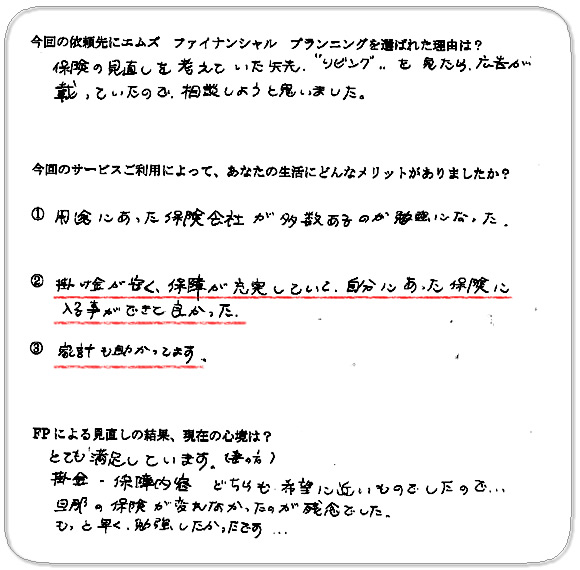 今回の依頼先にエムズ ファイナンシャル プランニングを選ばれた理由は？
保険の見直しを考えていた矢先、"リビング"を見たら、広告が
載っていたので、相談しようと思いました。
今回のサービスご利用によって、あなたの生活にどんなメリットがありましたか？
① 用途にあった保険会社が多数あるのが勉強になった。
② 掛け金が安く、保障が充実していて、自分にあった保険に
入る事ができて良かった。
③ 家計も助かってます。
FPによる見直しの結果、現在の心境は？
とても満足しています。(妻の方)
掛金・保障内容 どちらも希望に近いものでしたので…
旦那の保険が変れなかったのが残念でした。
もっと早く、勉強したかったです…